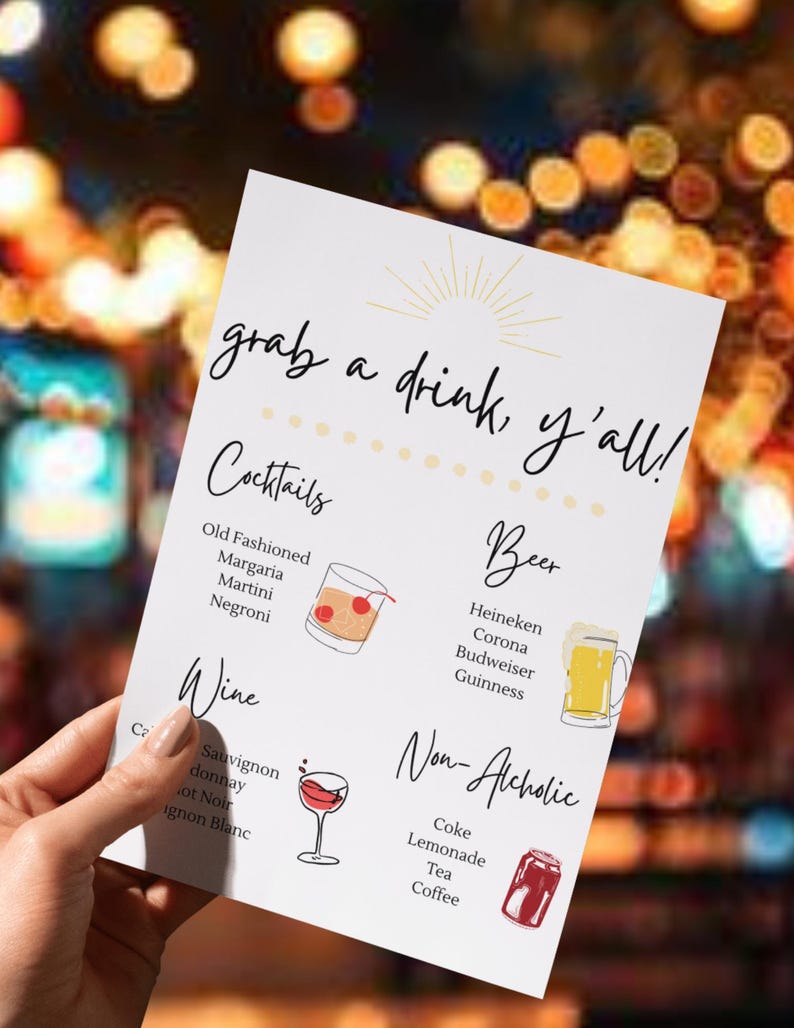 grab a drink, y'all!
Cocktails
Old Fashioned
Margaria
Martini
Negroni
Beer
Heineken
Corona
Budweiser
Guinness
Wine
Sauvignon
Noir
Blanc
Non-Alcholic
Coke
Lemonade
Tea
Coffee